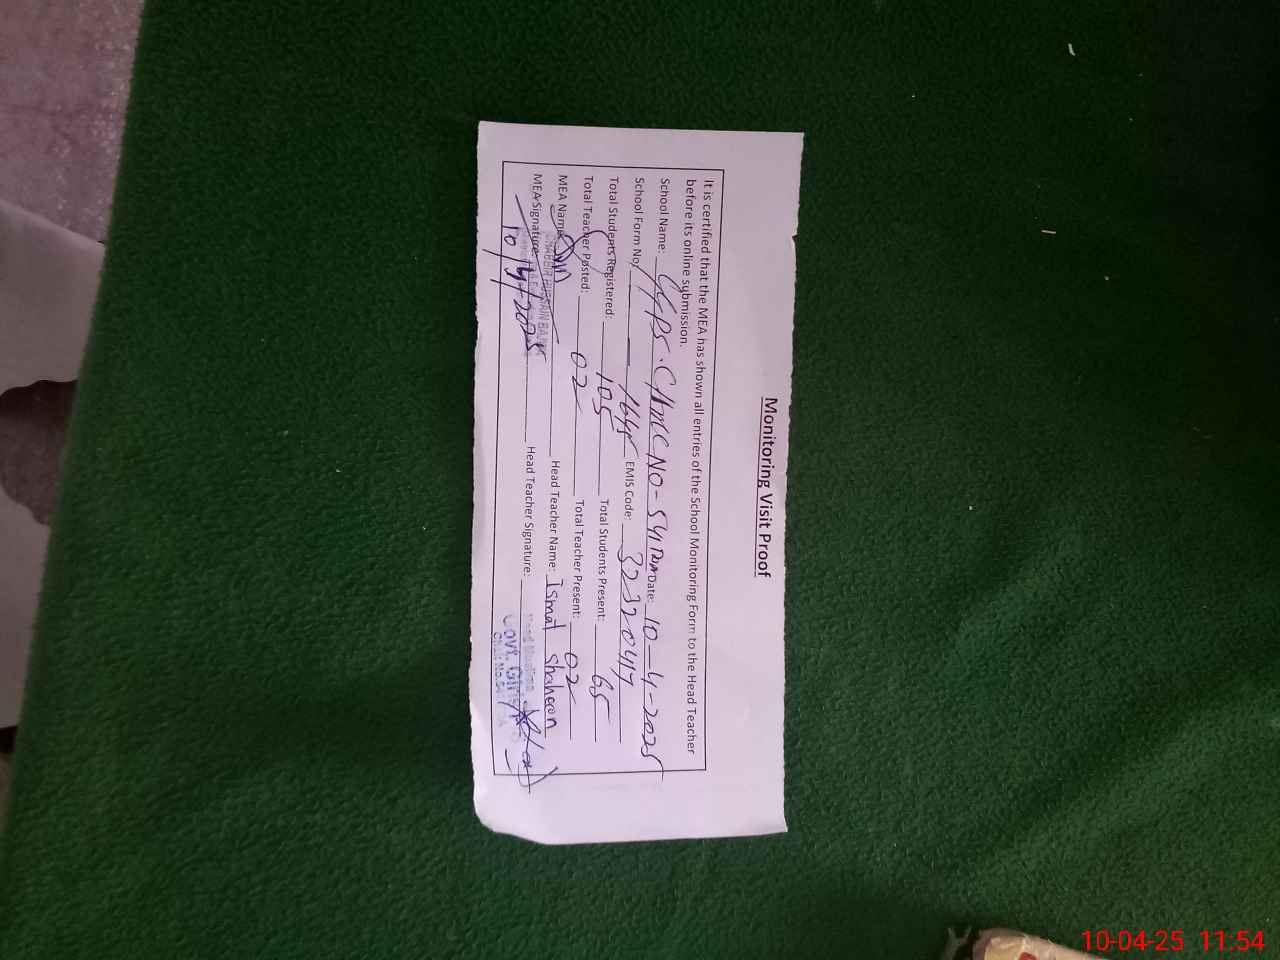 Monitoring Visit Proof
It is certified that the MEA has shown all entries of the School Monitoring Form to the Head Teacher
before its online submission.
School Name: GGPS. CHAK NO-541 TDA Date: 10-4-2025
School Form No: EMIS Code: 32320417
Total Students Registered: 105 Total Students Present: 65
Total Teacher Posted: 02 Total Teacher Present: 02
MEA Name: Head Teacher Name: Ismat Shaheen
MEA Signature: Head Teacher Signature:
HUSSAIN
10/4/2025
Govt. Girls
10-04-25 11:54